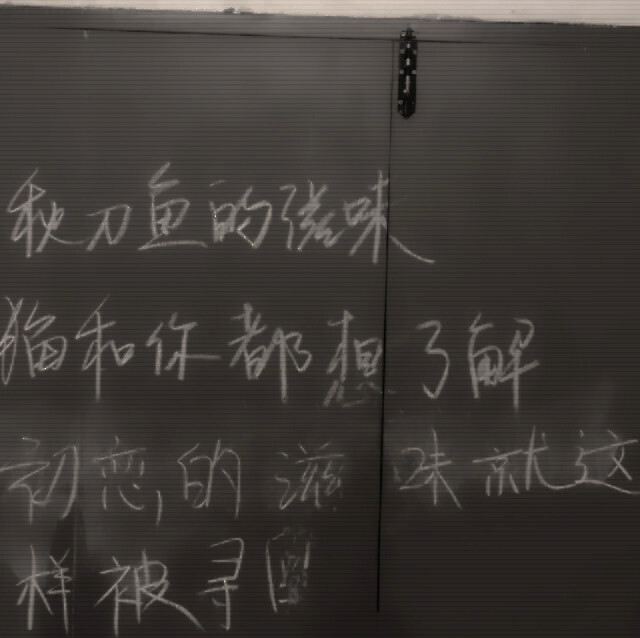 秋刀鱼的滋味
猫和你都想了解
初恋的滋味就这
样被寻